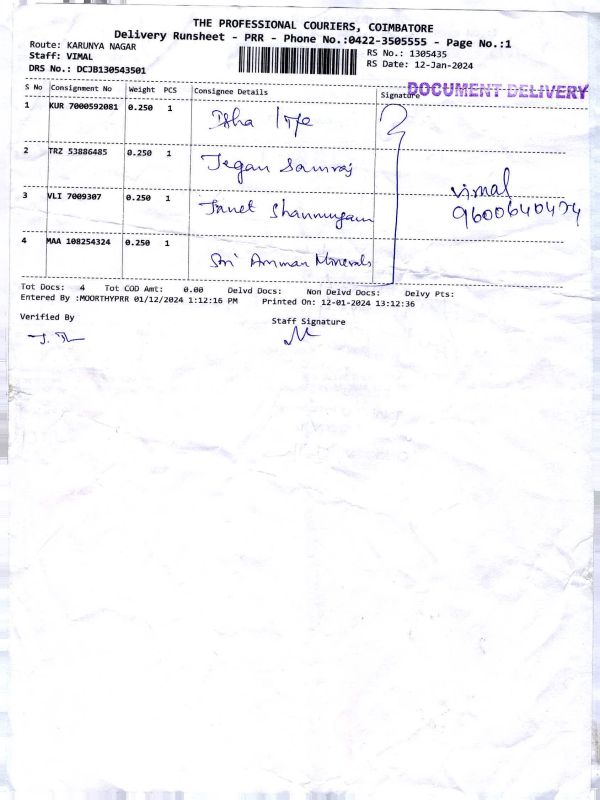 THE PROFESSIONAL COURIERS, COIMBATORE
Delivery Runsheet - PRR - Phone No.:0422-3505555 - Page No.:1
Route: KARUNYA NAGAR RS No.: 1305435
Staff: VIMAL RS Date: 12-Jan-2024
DRS No.: DCJB130543501
DOCUMENT DELIVERY
S No Consignment No Weight PCS Consignee Details Signature
1 KUR 7000592081 0.250 1 Isha life
2 TRZ 53886485 0.250 1 Jegan Samraj
3 VLI 7009307 0.250 1 Janet Shanmugam
4 MAA 108254324 0.250 1 Sri Amman Minerals
vimal
9600640474
Tot Docs: 4 Tot COD Amt: 0.00 Delvd Docs: Non Delvd Docs: Delvy Pts:
Entered By :MOORTHYPRR 01/12/2024 1:12:16 PM Printed On: 12-01-2024 13:12:36
Verified By Staff Signature